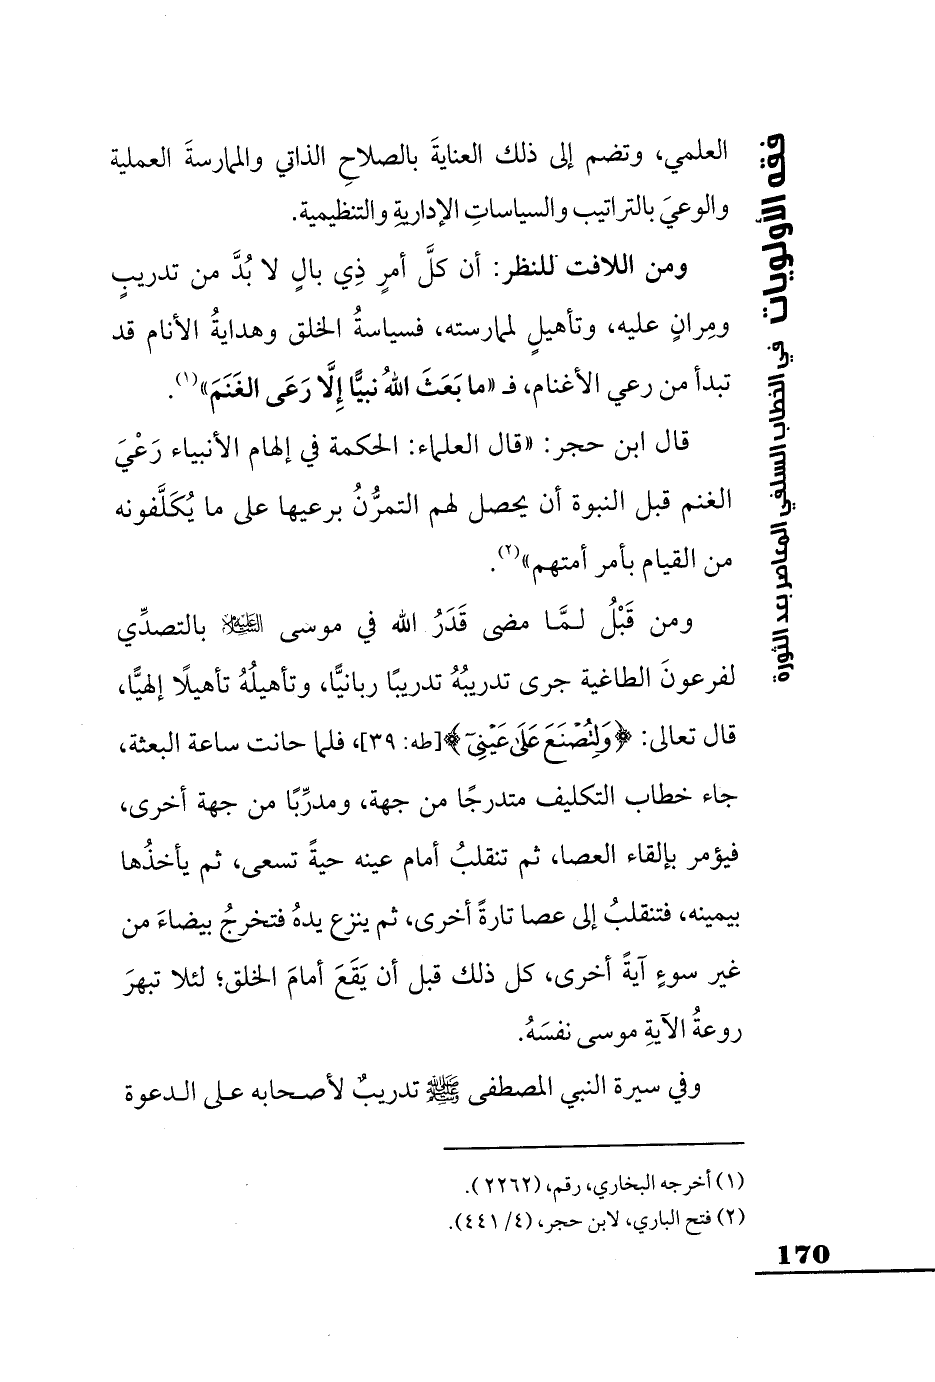 فقه الأولويات في الخطاب السلفي المعاصر بعد الثورة
العلمي، وتضم إلى ذلك العنايةَ بالصلاحِ الذاتي والممارسةَ العملية
والوعيَ بالتراتيب والسياساتِ الإداريةِ والتنظيمية.
ومن اللافت للنظر: أن كلَّ أمرٍ ذِي بالٍ لا بُدَّ من تدريبٍ
ومِرانٍ عليه، وتأهيلٍ لممارسته، فسياسةُ الخلق وهدايةُ الأنام قد
تبدأ من رعي الأغنام، فـ «ما بَعَثَ اللهُ نبيًّا إِلَّا رَعَى الغَنَمَ»(١).
قال ابن حجر: «قال العلماء: الحكمة في إلهام الأنبياء رَعْيَ
الغنم قبل النبوة أن يحصل لهم التمرُّنُ برعيها على ما يُكَلَّفونه
من القيام بأمر أمتهم»(٢).
ومن قَبْلُ لـمَّـا مضى قَدَرُ الله في موسى عليه السلام بالتصدِّي
لفرعونَ الطاغية جرى تدريبُهُ تدريبًا ربانيًّا، وتأهيلُهُ تأهيلًا إلهيًّا،
قال تعالى: ﴿وَلِتُصْنَعَ عَلَىٰ عَيْنِيٓ﴾[طه: ٣٩]، فلما حانت ساعة البعثة،
جاء خطاب التكليف متدرجًا من جهة، ومدرِّبًا من جهة أخرى،
فيؤمر بإلقاء العصا، ثم تنقلبُ أمام عينه حيةً تسعى، ثم يأخذُها
بيمينه، فتنقلبُ إلى عصا تارةً أخرى، ثم ينزع يدهُ فتخرجُ بيضاءَ من
غير سوءٍ آيةً أخرى، كل ذلك قبل أن يَقَعَ أمامَ الخلق؛ لئلا تبهرَ
روعةُ الآيةِ موسى نفسَهُ.
وفي سيرة النبي المصطفى ﷺ تدريبٌ لأصحابه على الدعوة
(١) أخرجه البخاري، رقم، (٢٢٦٢).
(٢) فتح الباري، لابن حجر، (٤/ ٤٤١).
170